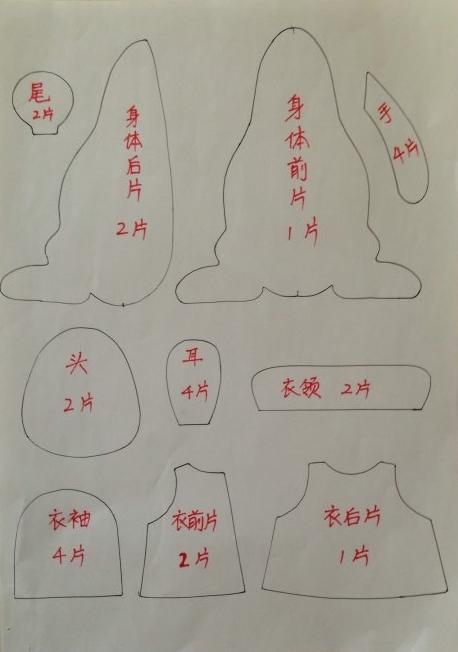 尾
2片
身体后片
2片
身体前片
1片
手
4片
头
2片
耳
4片
衣领 2片
衣袖
4片
衣前片
2片
衣后片
1片